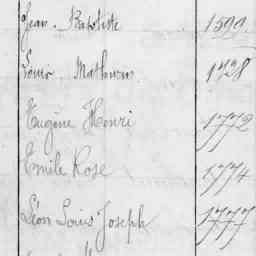 Jean Baptiste 1599
Louis Mathurin 1728
Eugène Henri 1772
Emile Rose 1774
Léon Louis Joseph 1777